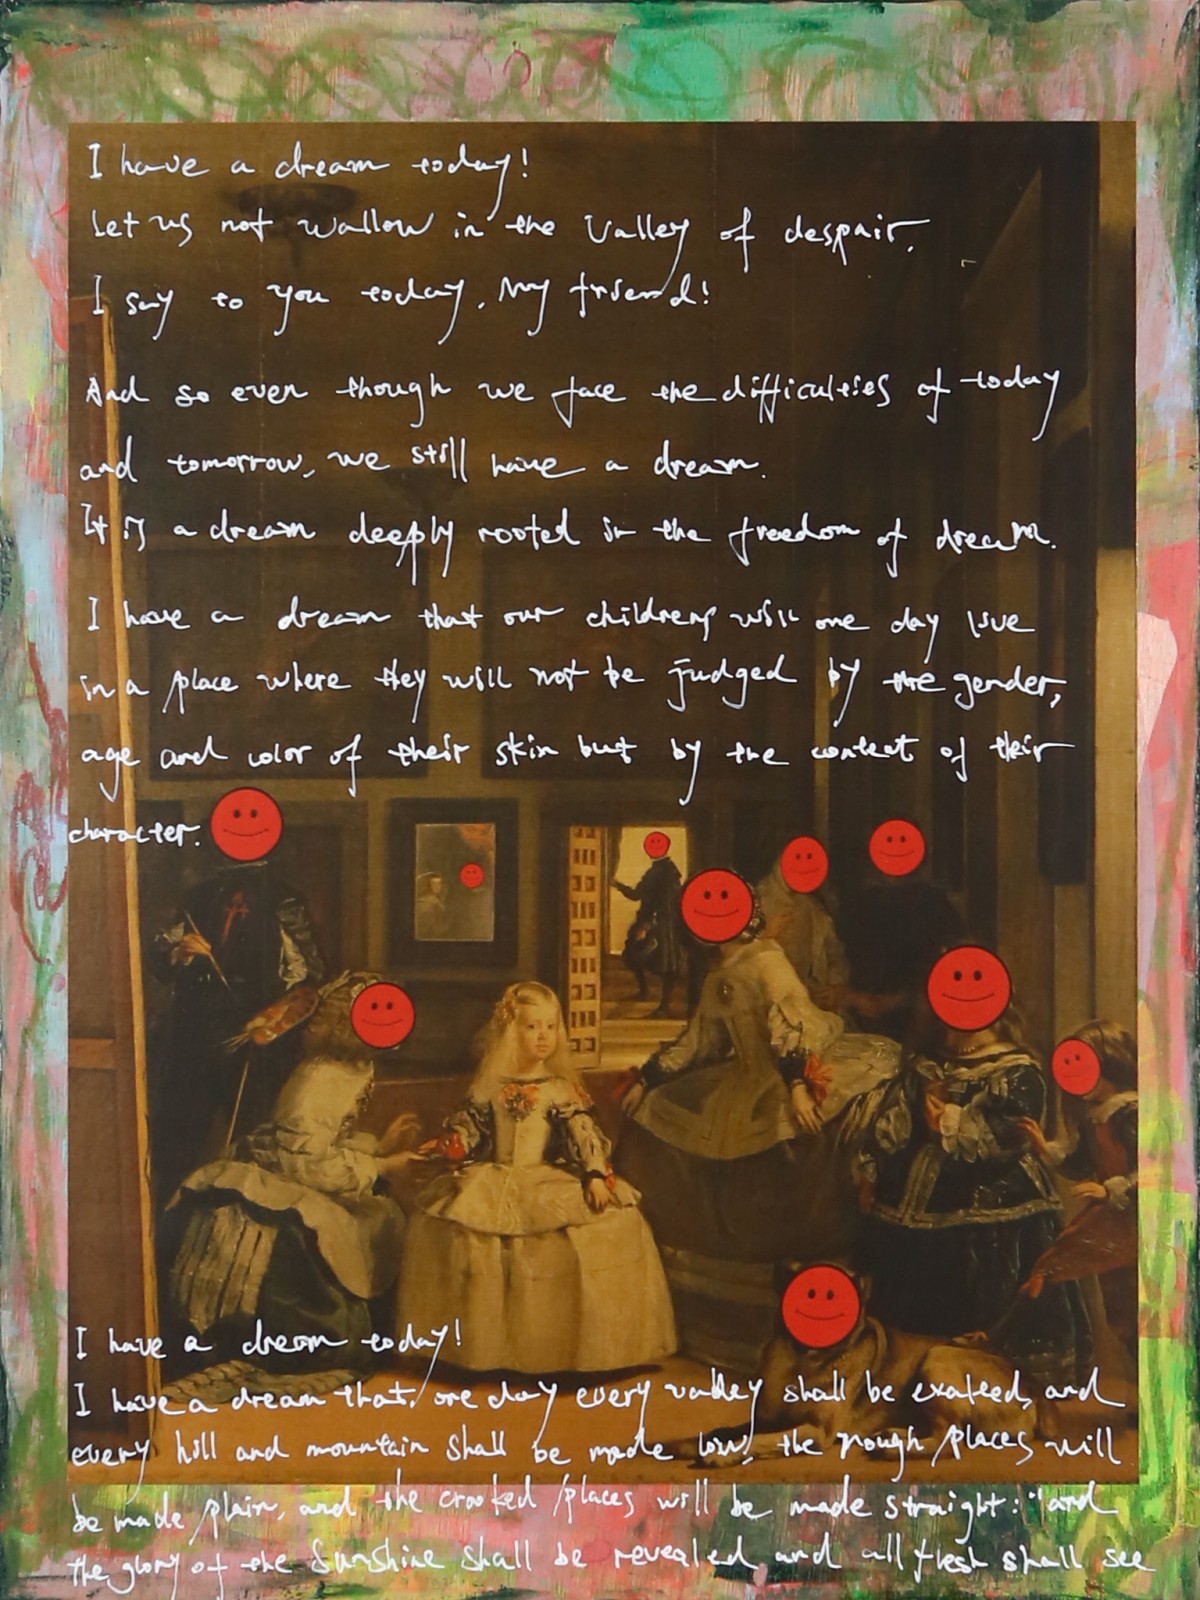 I have a dream today!
Let us not wallow in the valley of despair.
I say to you today, My friend!
And so even though we face the difficulties of today
and tomorrow, we still have a dream.
It is a dream deeply rooted in the freedom of dream.
I have a dream that our childrens will one day live
in a place where they will not be judged by the gender,
age and color of their skin but by the content of their
character.
I have a dream today!
I have a dream that, one day every valley shall be exalted, and
every hill and mountain shall be made low, the rough places will
be made plain, and the crooked places will be made straight: "and
the glory of the Sunshine shall be revealed and all flesh shall see